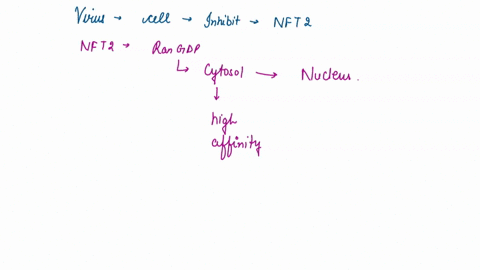 Virus → cell → Inhibit → NFT2
NFT2 → Ran GDP
↳ Cytosol → Nucleus.
↓
high
affinity